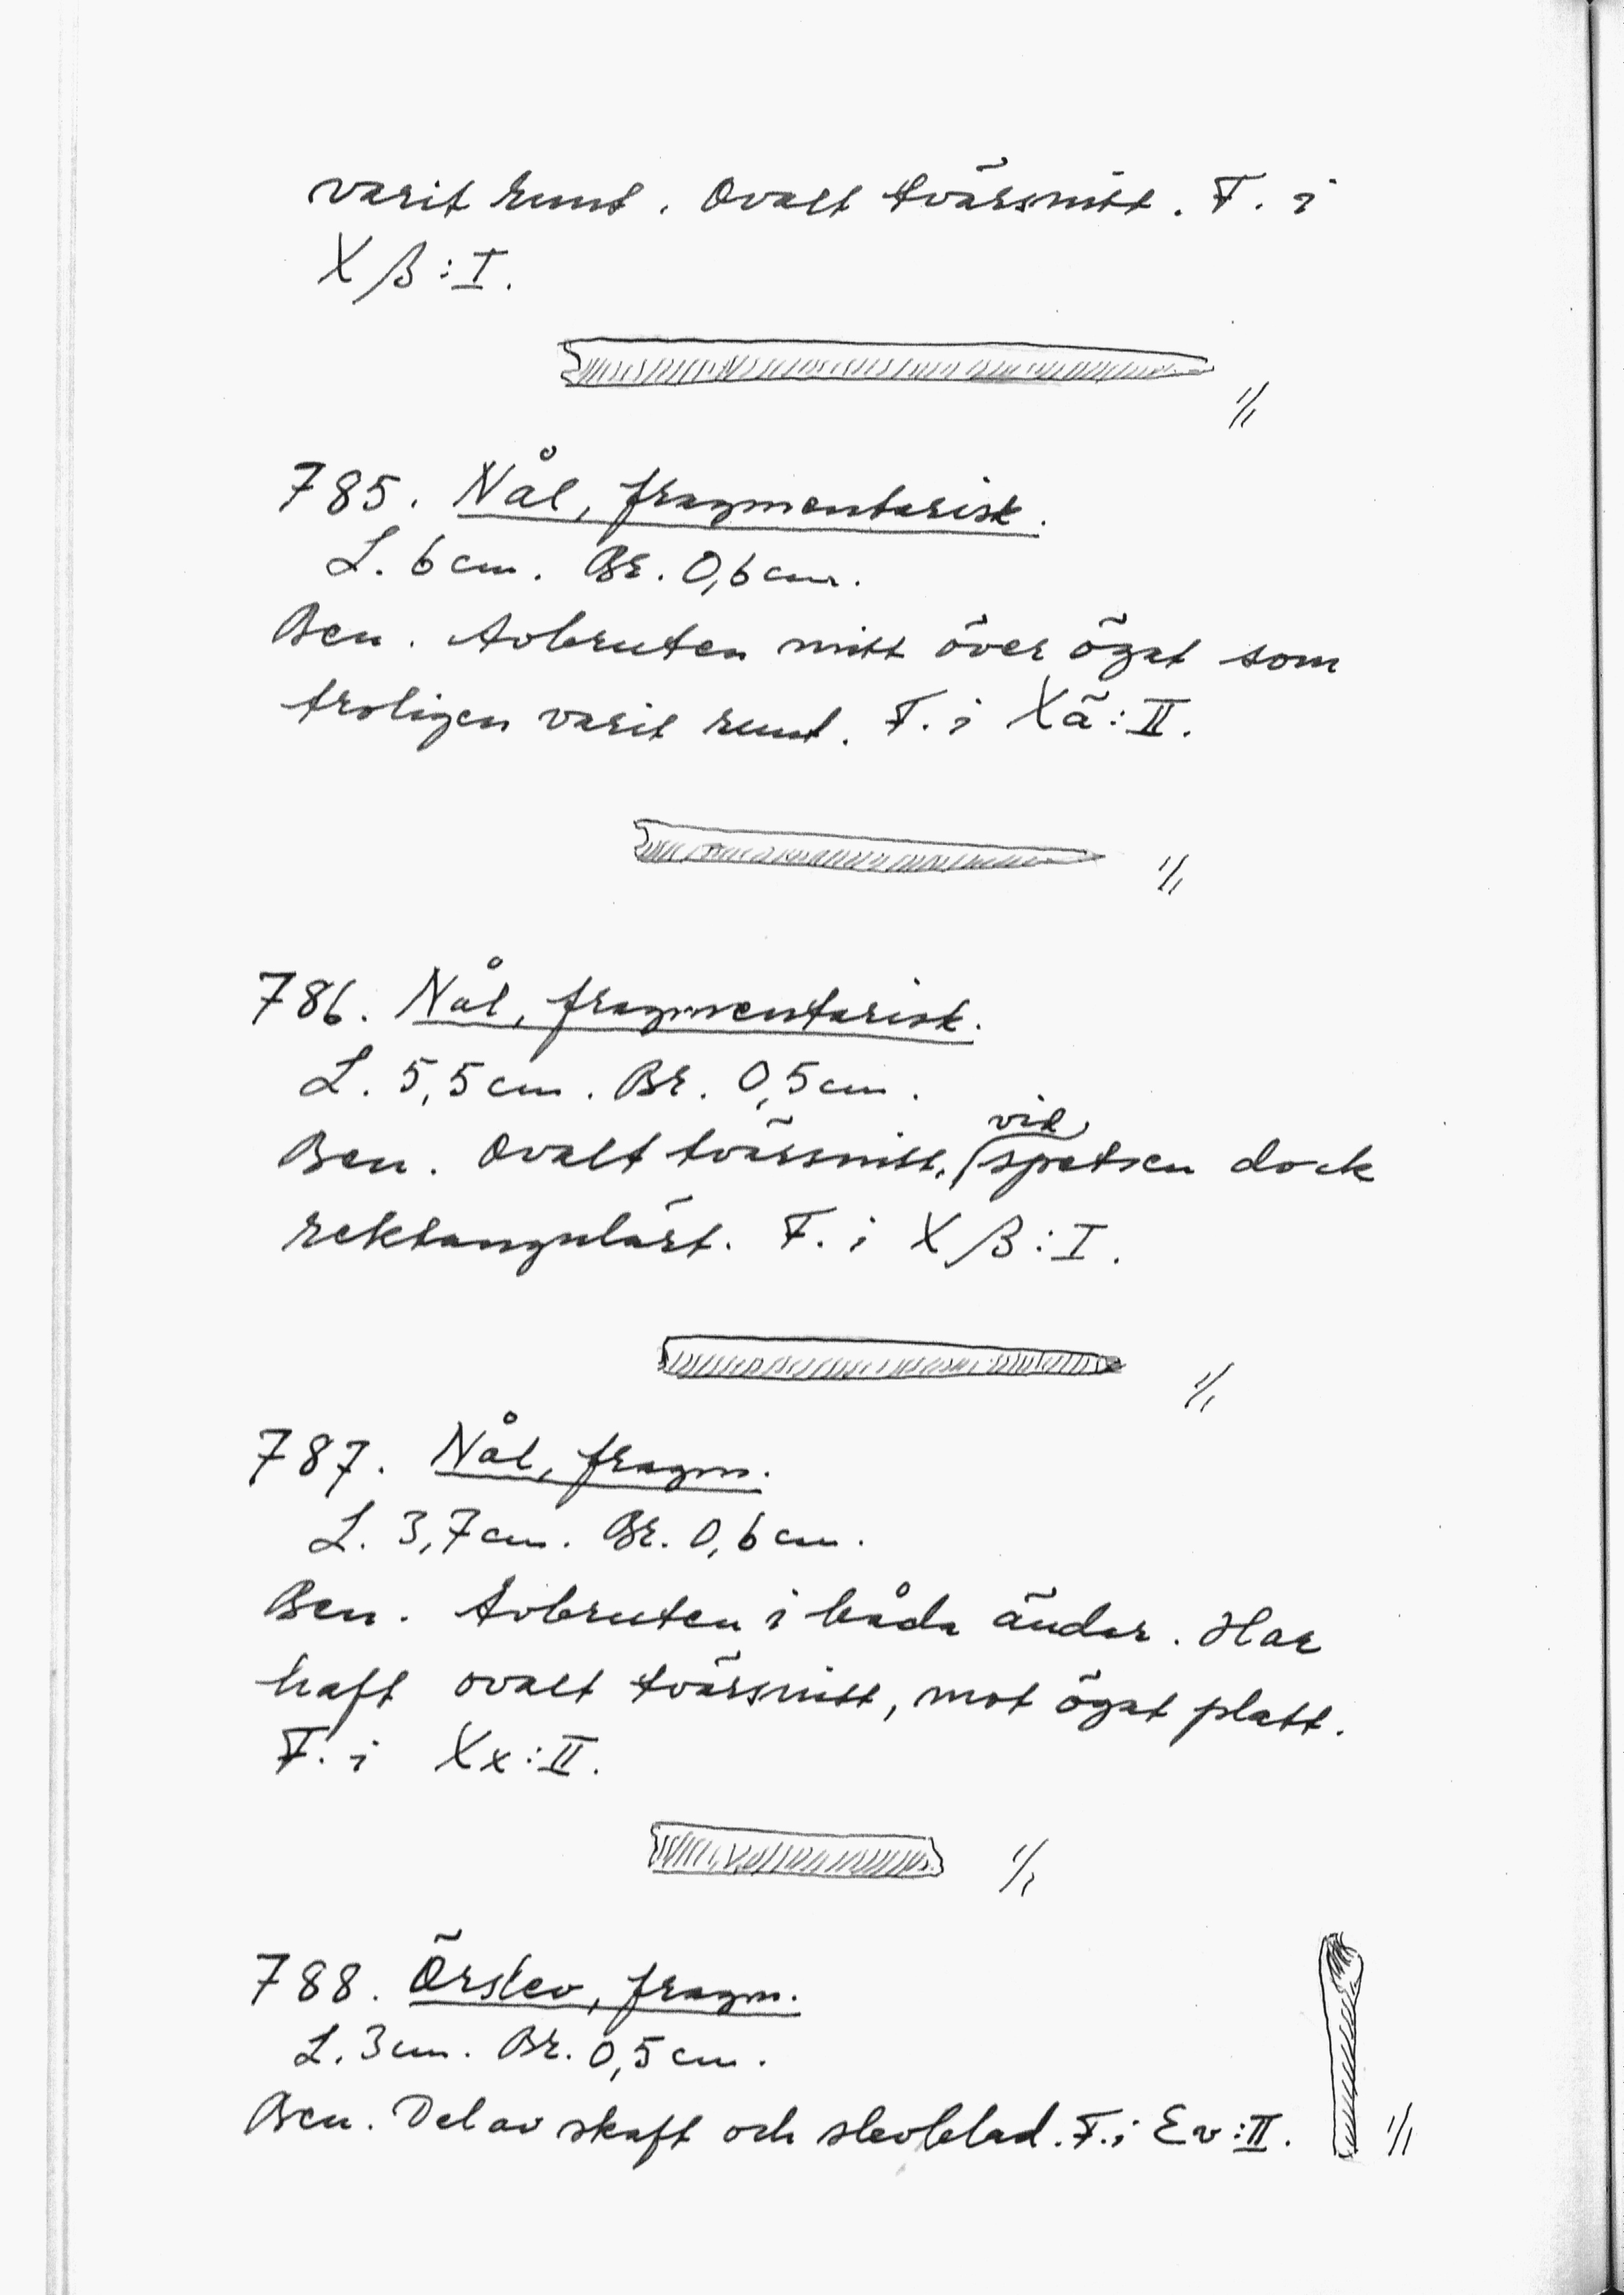 varit runt. Ovalt tvärsnitt. F. i
Xβ:I.
1/1
785. Nål, fragmentarisk.
L. 6 cm. Br. 0,6 cm.
Ben. Avbruten mitt över ögat som
troligen varit runt. F. i Xä:II.
1/1
786. Nål, fragmentarisk.
L. 5,5 cm. Br. 0,5 cm.
Ben. Ovalt tvärsnitt, vid spetsen dock
rektangulärt. F. i Xβ:I.
1/1
787. Nål, fragm.
L. 3,7 cm. Br. 0,6 cm.
Ben. Avbruten i båda ändar. Har
haft ovalt tvärsnitt, mot ögat platt.
F. i Xx:II.
1/1
788. Örslev, fragm.
L. 3 cm. Br. 0,5 cm.
Ben. Del av skaft och slevblad. F. i Ev:II.
1/1